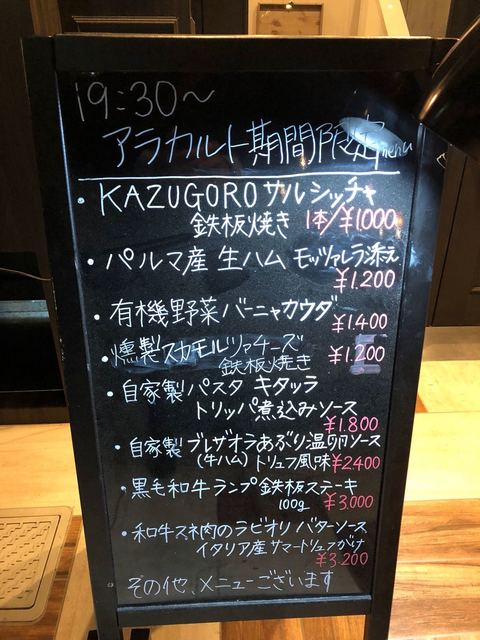 19:30〜
アラカルト期間限定menu
・KAZUGOROサルシッチャ
鉄板焼き 1本/¥1000
・パルマ産 生ハム モッツァレラ添え
¥1.200
・有機野菜バーニャカウダ
¥1.400
・燻製スカモルツァチーズ
鉄板焼き ¥1.200
・自家製パスタ キタッラ
トリッパ煮込みソース
¥1.800
・自家製ブレザオラあぶり温卵ソース
(牛ハム)トリュフ風味¥2400
・黒毛和牛ランプ鉄板ステーキ
100g ¥3.000
・和牛スネ肉のラビオリ バターソース
イタリア産サマートリュフがけ
¥3.200
その他、メニューございます